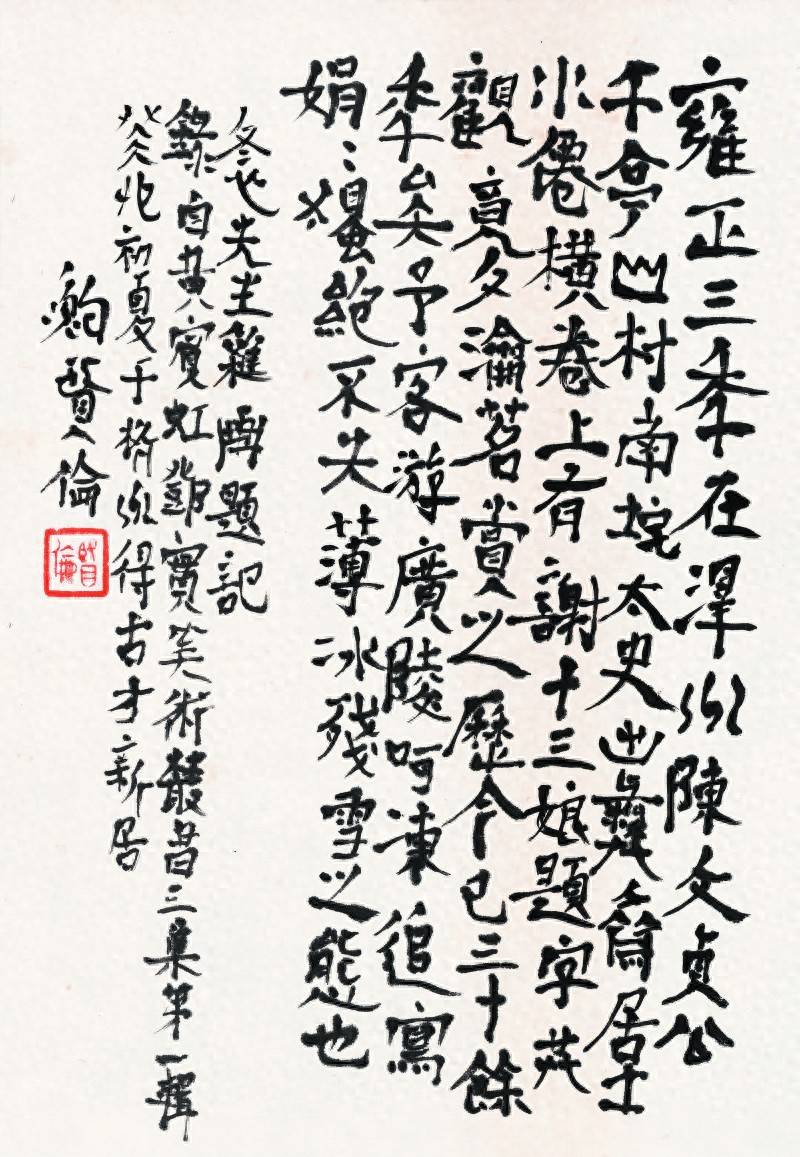 雍正三年在澤州陳文貞公
午亭山村南垞太史出彝齋居士
水僊橫卷上有謝十三娘題字燕
觀竟夕瀹茗賞之歷今已三十餘
年矣予客游廣陵呵凍追寫
娟〻獨絕不失薄冰殘雪之態也
冬心先生雜畫題記
錄自黃賓虹鄧實美術叢書三集第一輯
癸卯初夏于揚州得古才新居
賢倫
賢倫